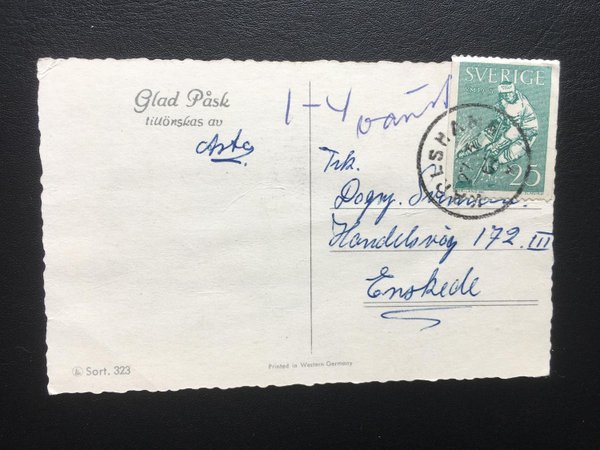 Glad Påsk
tillönskas av
Asta
1-4
SVERIGE
25
KARLSHAMN
Frk.
Dagny
Handelsväg 172. III
Enskede
Sort. 323
Printed in Western Germany